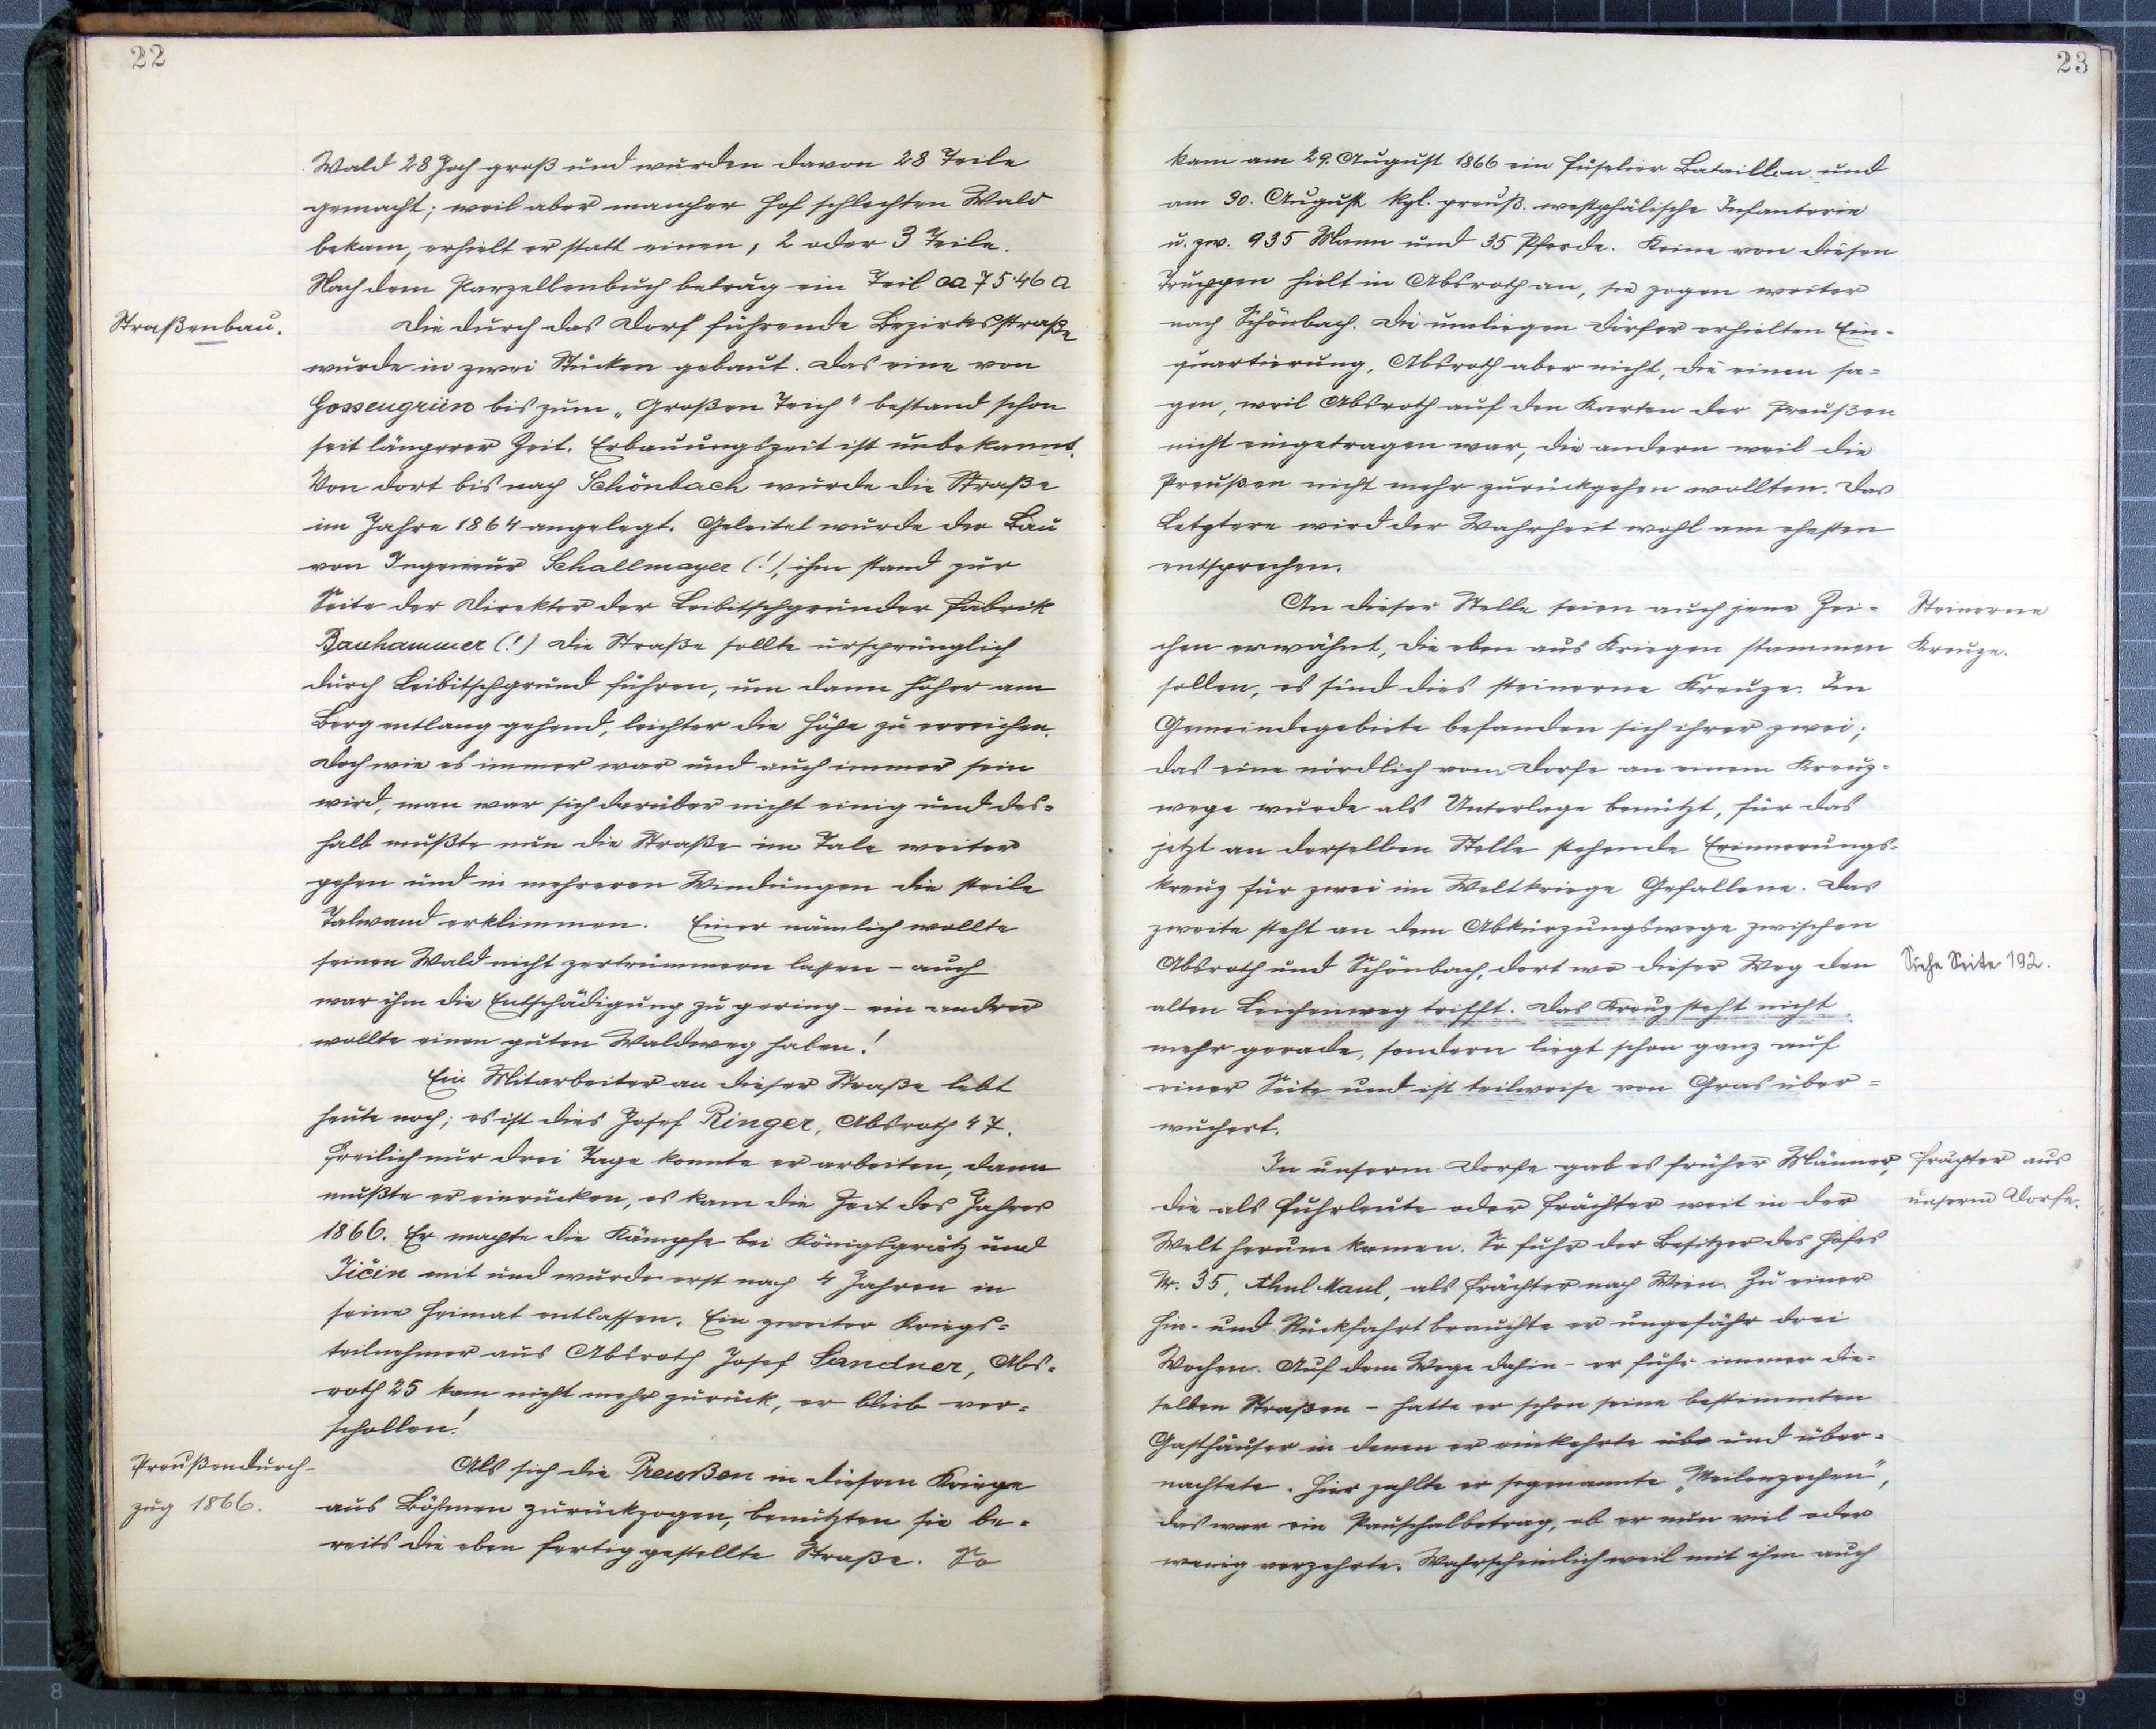 22
Wald 28 Joch groß und wurden davon 28 Teile
gemacht; weil aber mancher Hof schlechten Wald
bekam, erhielt er statt einen, 2 oder 3 Teile.
Nach dem Parzellenbuch betrug ein Teil ca 75·46 a
Straßenbau.
Die durch das Dorf führende Bezirksstraße
wurde in zwei Stücken gebaut. Das eine von
Gossengrün bis zum „Großen Teich" bestand schon
seit längerer Zeit. Erbauungszeit ist unbekannt.
Von dort bis nach Schönbach wurde die Straße
im Jahre 1864 angelegt. Geleitet wurde der Bau
von Ingenieur Schallmayer (!), ihm stand zur
Seite der Direktor der Leibitschgrunder Fabrik
Bauhammer (!) Die Straße sollte ursprünglich
durch Leibitschgrund führen, um dann höher am
Berg entlang gehend, leichter die Höhe zu erreichen.
Doch wie es immer war und auch immer sein
wird, man war sich darüber nicht einig und des=
halb mußte nun die Straße im Tale weiter
gehen und in mehreren Windungen die steile
Talwand erklimmen. Einer nämlich wollte
seinen Wald nicht zertrümmern lassen - auch
war ihm die Entschädigung zu gering - ein andrer
wollte einen guten Waldweg haben!
Ein Mitarbeiter an dieser Straße lebt
heute noch; es ist dies Josef Ringer, Absroth 47.
Freilich nur drei Tage konnte er arbeiten, dann
mußte er einrücken, es kam die Zeit des Jahres
1866. Er machte die Kämpfe bei Königsgrätz und
Jičin mit und wurde erst nach 4 Jahren in
seine Heimat entlassen. Ein zweiter Kriegs=
teilnehmer aus Absroth Josef Sandner, Abs=
roth 25 kam nicht mehr zurück, er blieb ver=
schollen!
Preußendurch-
zug 1866.
Als sich die Preußen in diesem Kriege
aus Böhmen zurückzogen, benützten sie be=
reits die eben fertig gestellte Straße. So
23
kam am 29. August 1866 ein Füselier Bataillon und
am 30. August kgl. preuß. westphälische Infanterie
u. zw. 935 Mann und 35 Pferde. Keine von diesen
Truppen hielt in Absroth an, sie zogen weiter
nach Schönbach. Die umliegen Dörfer erhielten Ein=
quartierung, Absroth aber nicht, die einen sa=
gen, weil Absroth auf den Karten der Preußen
nicht eingetragen war, die andern weil die
Preußen nicht mehr zurückgehen wollten. Das
Letztere wird der Wahrheit wohl am ehesten
entsprechen.
Steinerne
Kreuze.
An dieser Stelle seien auch jene Zei=
chen erwähnt, die eben aus Kriegen stammen
sollen, es sind dies steinerne Kreuze. Im
Gemeindegebiete befanden sich ihrer zwei;
das eine nördlich vom Dorfe an einem Kreuz=
wege wurde als Unterlage benützt, für das
jetzt an derselben Stelle stehende Erinnerungs=
kreuz für zwei im Weltkriege Gefallene. Das
zweite steht an dem Abkürzungswege zwischen
Absroth und Schönbach, dort wo dieser Weg den
Siehe Seite 192.
alten Leichenweg trifft. Das Kreuz steht nicht
mehr gerade, sondern liegt schon ganz auf
einer Seite und ist teilweise von Gras über=
wuchert.
Frächter aus
unserm Dorfe.
In unserm Dorfe gab es früher Männer,
die als Fuhrleute oder Frächter weit in der
Welt herum kamen. So fuhr der Besitzer des Hofes
Nr. 35, Maul, als Frächter nach Wien. Zu einer
Hin- und Rückfahrt brauchte er ungefähr drei
Wochen. Auf dem Wege dahin - er fuhr immer die=
selben Straßen - hatte er schon seine bestimmten
Gasthäuser in denen er einkehrte übe und über=
nachtete. Hier zahlte er sogenannte „Meilenzechen",
das war ein Pauschalbetrag, ob er nun viel oder
wenig verzehrte. Wahrscheinlich weil mit ihm auch